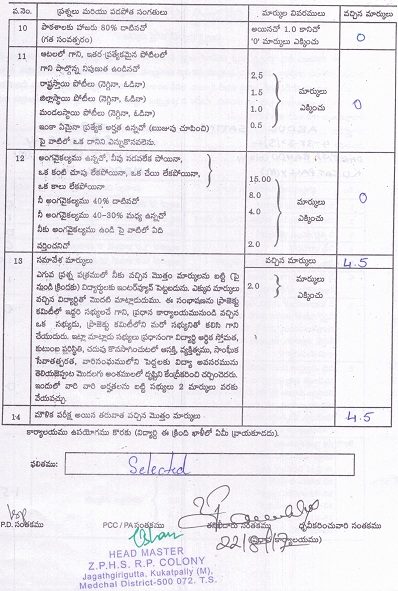 వ.నెం. ప్రశ్నలు మరియు పరపోత సంగతులు మార్కుల వివరములు వచ్చిన మార్కులు
10 పాఠశాలకు హాజరు 80% దాటినచో అయినచో 1.0 కానిచో 0
(గత సంవత్సరం) '0' మార్కులు ఎక్కించు
11 ఆటలలో గాని, ఇతర ప్రత్యేకమైన పోటీలలో
గాని పాల్గొన్న నిపుణుత ఉండినచో 2.5
రాష్ట్రస్థాయి పోటీలు (నెగ్గినా, ఓడినా) మార్కులు
జిల్లాస్థాయి పోటీలు (నెగ్గినా, ఓడినా) 1.5 ఎక్కించు 0
మండలస్థాయి పోటీలు (నెగ్గినా, ఓడినా) 1.0
ఇంకా ఏమైనా ప్రత్యేక అర్హత ఉన్నచో (ఋజువు చూపించి) 0.5
పై వాటిలో ఒక దానిని ఎన్నుకొనవలెను.
12 అంగవైకల్యము ఉన్నచో, నీవు నడవలేక పోయినా,
ఒక కంటి చూపు లేకపోయినా, ఒక చేయి లేకపోయినా, 15.00
ఒక కాలు లేకపోయినా 8.0 మార్కులు 0
నీ అంగవైకల్యము 40% దాటినచో 4.0 ఎక్కించు
నీ అంగవైకల్యము 40-30% మధ్య ఉన్నచో
నీకు అంగవైకల్యము ఉండి పై వాటిలో ఏది
వర్తించనిచో 2.0
13 సమావేశ మార్కులు వచ్చిన మార్కులు 4.5
ఎగువ ప్రశ్న పత్రములో నీకు వచ్చిన మొత్తం మార్కులను బట్టి (పై 2.0 మార్కులు
నుండి క్రిందకు) విద్యార్థులకు ఇంటర్వ్యూన్ పెట్టబడును. ఎక్కువ మార్కులు ఎక్కించు
వచ్చిన విద్యార్థితో మొదట మాట్లాడుదుము. ఈ సంభాషణను ప్రాజెక్టు
కమిటీలో ఇద్దరి సభ్యులచే గాని, ప్రధాన కార్యాలయమునుండి వచ్చిన
ఒక సభ్యుడు, ప్రాజెక్టు కమిటీలోని మరో సభ్యునితో కలిసి గాని
చేయుదురు. ఇట్లా మాట్లాడు సభ్యులు ప్రధానంగా విద్యార్థి ఆర్థిక స్తోమత,
కుటుంబ పరిస్థితి, చదువు కొనసాగించుటలో ఆసక్తి, వ్యక్తిత్వము, సాంఘిక
సేవాతత్పరత, వారిసంఘములోని పెద్దలకు విద్యా అవసరమును
తెలియజెప్పుట మొదలగు అంశములలో దృష్టిని కేంద్రీకరించి చర్చించెదరు.
ఇందులో వారి వారి అర్హతలను బట్టి సభ్యులు 2 మార్కులు వరకు
వేయవచ్చు.
14 మౌళిక పరీక్ష అయిన తరువాత వచ్చిన మొత్తం మార్కులు 4.5
కార్యాలయము ఉపయోగము కొరకు (విద్యార్థి ఈ క్రింది ఖాళీలో ఏమీ వ్రాయకూడదు).
ఫలితము: Selected
P.D. సంతకము PCC / PA సంతకము తనిఖీదారు సంతకము ధృవీకరించువారి సంతకము
(ప్రధాన కార్యాలయము)
HEAD MASTER
Z.P.H.S. R.P. COLONY
Jagathgirigutta, Kukatpally (M),
Medchal District-500 072. T.S.